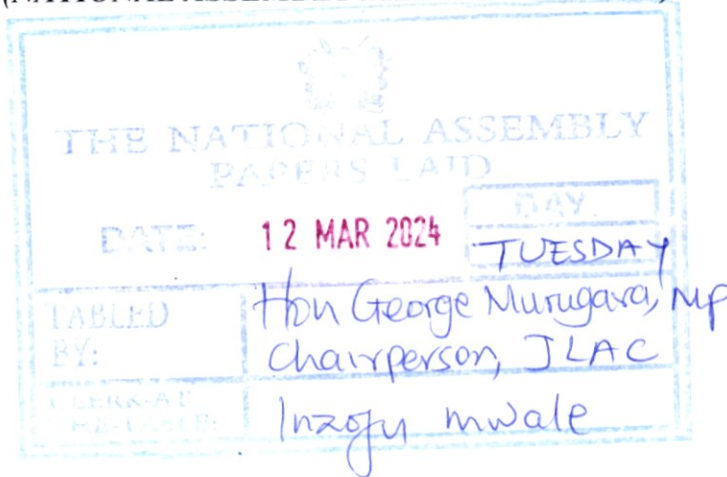 THE NATIONAL ASSEMBLY
PAPERS LAID
DATE: 12 MAR 2024 DAY.
TUESDAY
TABLED BY: Hon George Murugara, MP
Chairperson, JLAC
CLERK-AT THE-TABLE: Inzofu Mwale